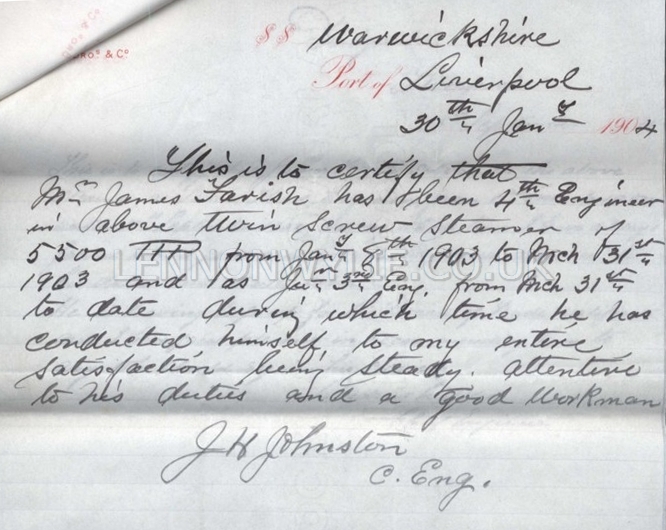 ROS & Co
BROS & Co
SS Warwickshire
Port of Liverpool
30th Jany 1904
This is to certify that
Mr James Farish has been 4th Engineer
in above Twin Screw Steamer of
5500 from Jany 8th 1903 to Mch 31st
1903 and as Junr 3rd Eng. from Mch 31st
to date during which time he has
conducted himself to my entire
satisfaction being steady. attentive
to his duties and a good workman
J H Johnston
C. Eng.
LENNONWYLIE.CO.UK